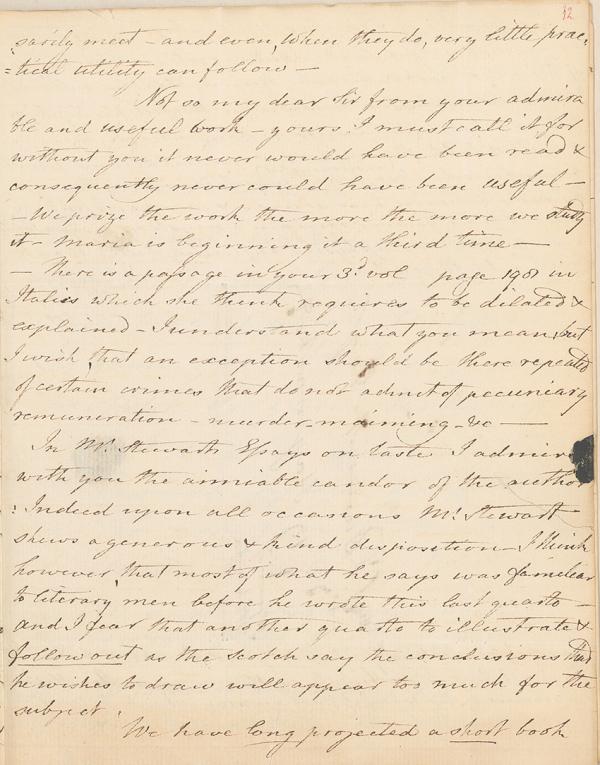 12
sarily meet – and even, when they do, very little prac=
=tical utility can follow –
Not so my dear Sir from your admira
ble and useful work – yours I must call it for
without you it never would have been read &
consequently never could have been useful –
– We prize the work the more the more we study
it – Maria is beginning it a third time –
– There is a passage in your 3.d vol page 190 in
Italics which she think requires to be dilated &
explained – I understand what you mean, but
I wish, that an exception should be there repeated
of certain crimes that do not admit of pecuniary
remuneration – murder maiming – &c –
In Mr. Stewarts Essays on taste I admire
with you the amiable candor of the author
: Indeed upon all occasions Mr. Stewart
shews a generous & kind disposition – I think
however, that most of what he says was familear
to literary men before he wrote this last quarto –
and I fear that another quarto to illustrate &
follow out as the Scotch say the conclusions that
he wishes to draw will appear too much for the
subject.
We have long projected a short book